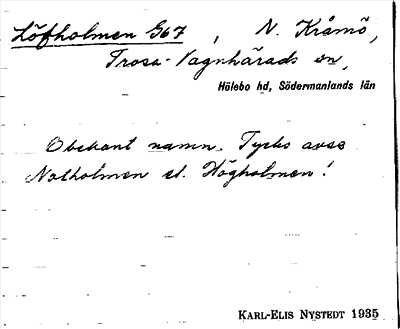 Löfholmen G67, N. Kråmö,
Trosa-Vagnhärads sn,
Hölebo hd, Södermanlands län
Obekant namn. Tycks avse
Notholmen el. Högholmen!
KARL-ELIS NYSTEDT 1935